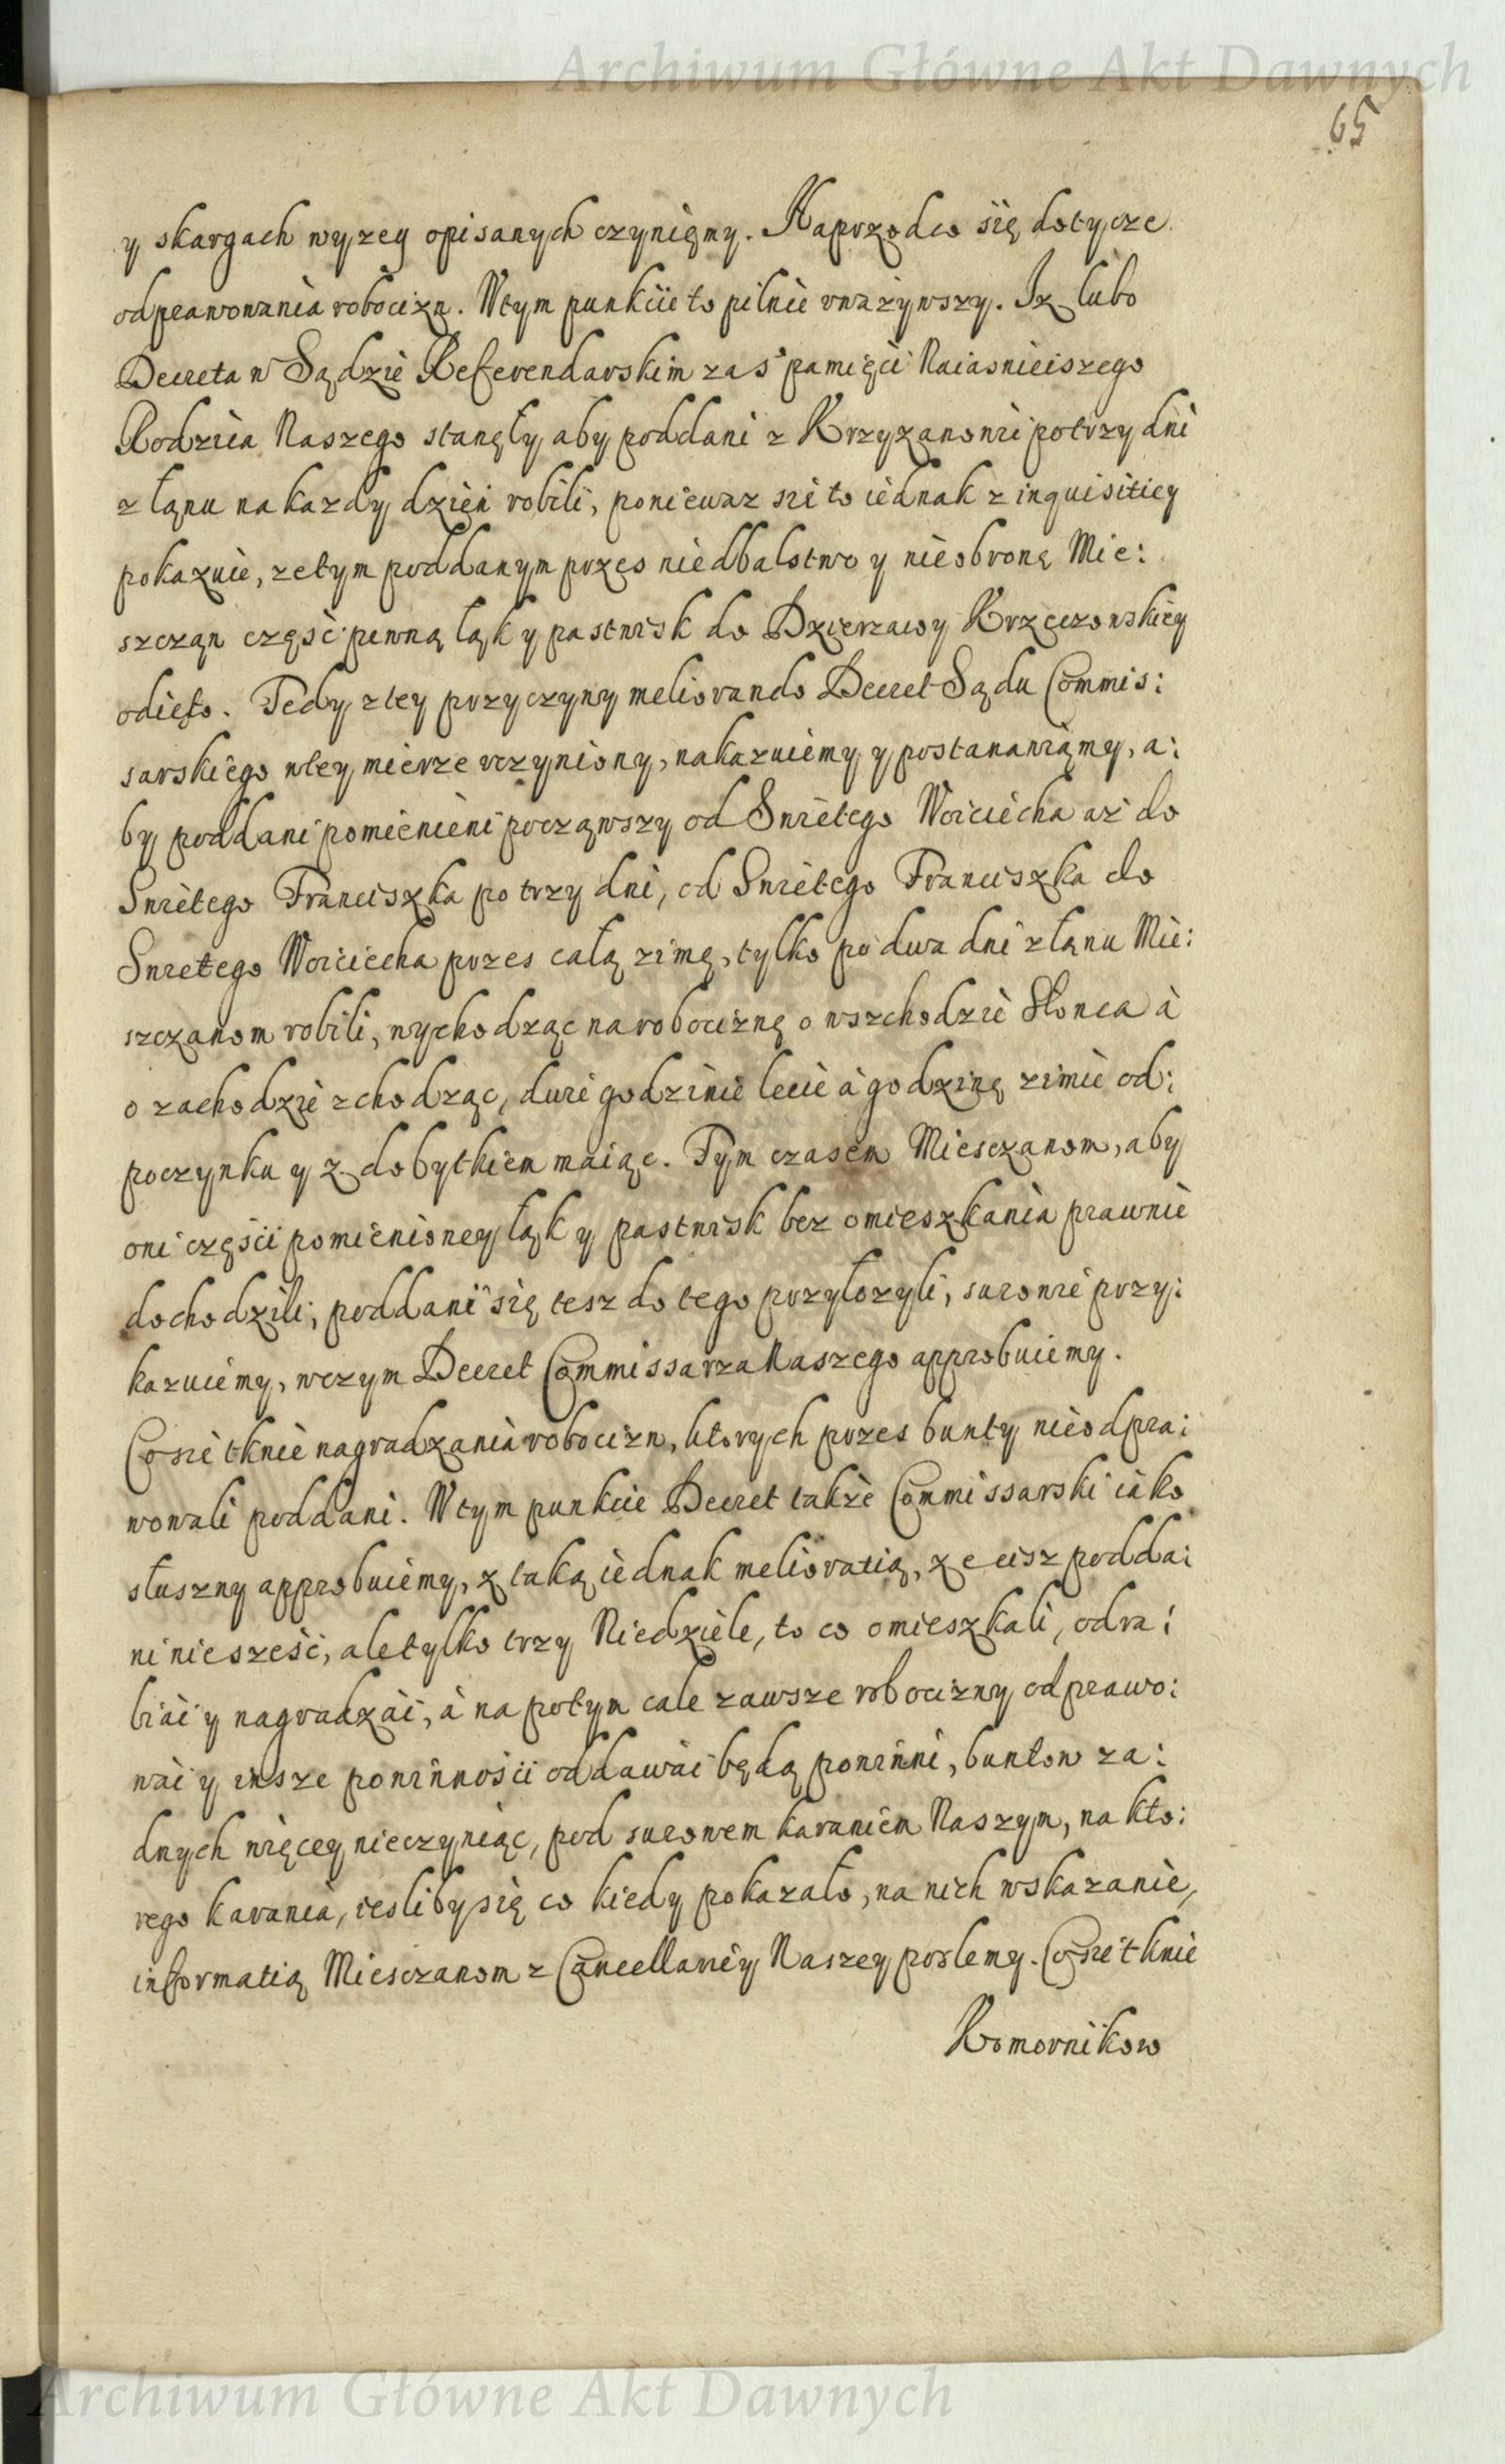 Archiwum Główne Akt Dawnych
65
y skargach wyzey opisanych czynięmy. Naprzod co się dotycze
odprawowania robocizn. W tym punkcie to pilnie uwazywszy. Iz lubo
Decreta w Sądzie Referendarskim za S pamięci Naiasnieiszego
Rodzica Naszego stanęły, aby poddani z Krzyzanowic po trzy dni
z łanu na kazdy dzien robili, poniewaz sie to iednak z inquisitiey
pokazuie, ze tym poddanym przes niedbalstwo y nieobronę Mie:
szczan część pewną łąk y pastwisk do Dzierzawy Krzeczowskiey
odięto. Tedy z tey przyczyny meliorando Decret Sądu Commis:
sarskiego w tey mierze uczyniony, nakazuiemy y postanawiamy, a:
by poddani pomienieni począwszy od Swiętego Woiciecha az do
Swiętego Franciszka po trzy dni, od Swiętego Franciszka do
Swiętego Woiciecha przes całą zimę, tylko po dwa dni z łanu Mie:
szczanom robili, wychodząc na robociznę o wschodzie Słonca à
o zachodzie schodząc, dwie godzinie lecie à godzinę zimie od:
poczynku y z dobytkiem maiąc. Tym czasem Miesczanom, aby
oni części pomienioney łąk y pastwisk bez omieszkania prawnie
dochodzili, poddani się tesz do tego przyłozyli, surowie przy:
kazuiemy, w czym Decret Commissarza Naszego approbuiemy.
Co sie tknie nagradzania robocizn, ktorych przes bunty nieodpra:
wowali poddani. W tym punkcie Decret takze Commissarski iako
słuszny approbuiemy, z taką iednak melioratią, ze cisz podda:
ni nie sześć, ale tylko trzy Niedziele, to co omieszkali, odra:
biać y nagradzać, à na potym cale zawsze robocizny odprawo:
wać y insze powinności oddawać będą powinni, buntow za:
dnych więcey nieczyniąc, pod surowem karaniem Naszym, na kto:
rego karania, iesliby się co kiedy pokazało, na nich wskazanie,
informatią Miesczanom z Cancellariey Naszey poslemy. Co sie tknie
Komornikow
Archiwum Główne Akt Dawnych